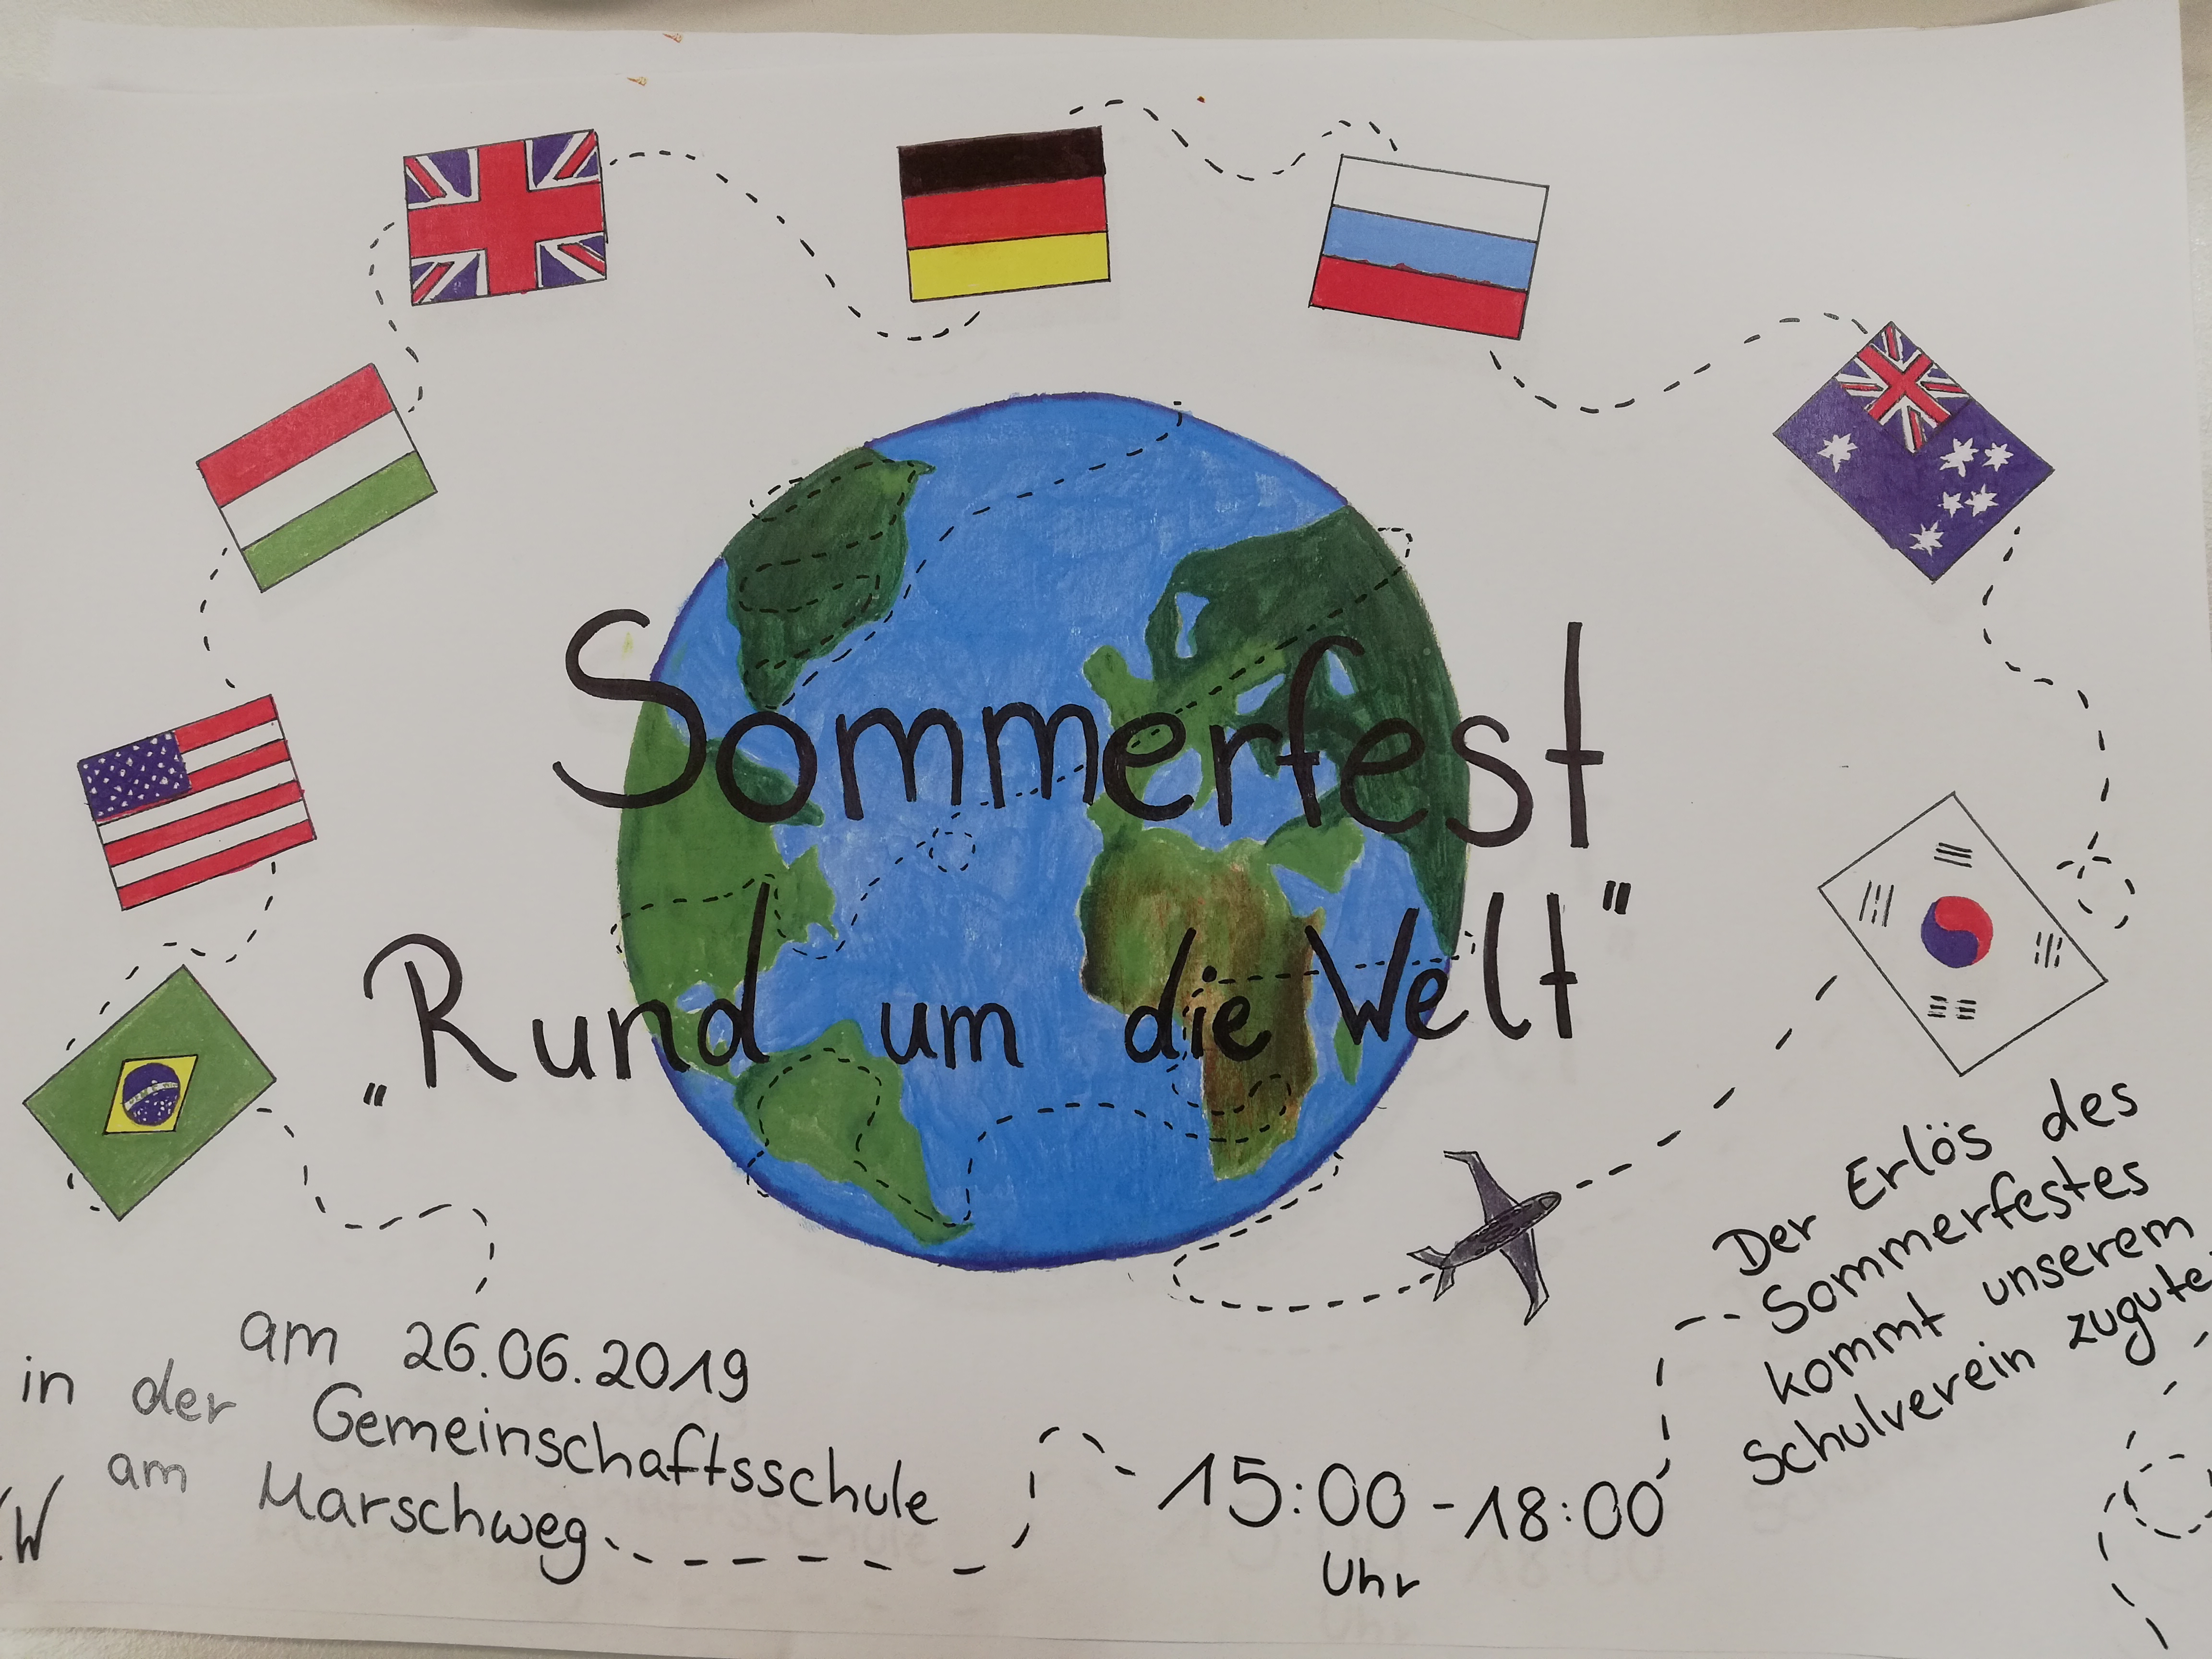 Sommerfest
„Rund um die Welt"
am 26.06.2019
in der Gemeinschaftsschule
am Marschweg
15:00 - 18:00
Uhr
Der Erlös des
Sommerfestes
kommt unserem
Schulverein zugute